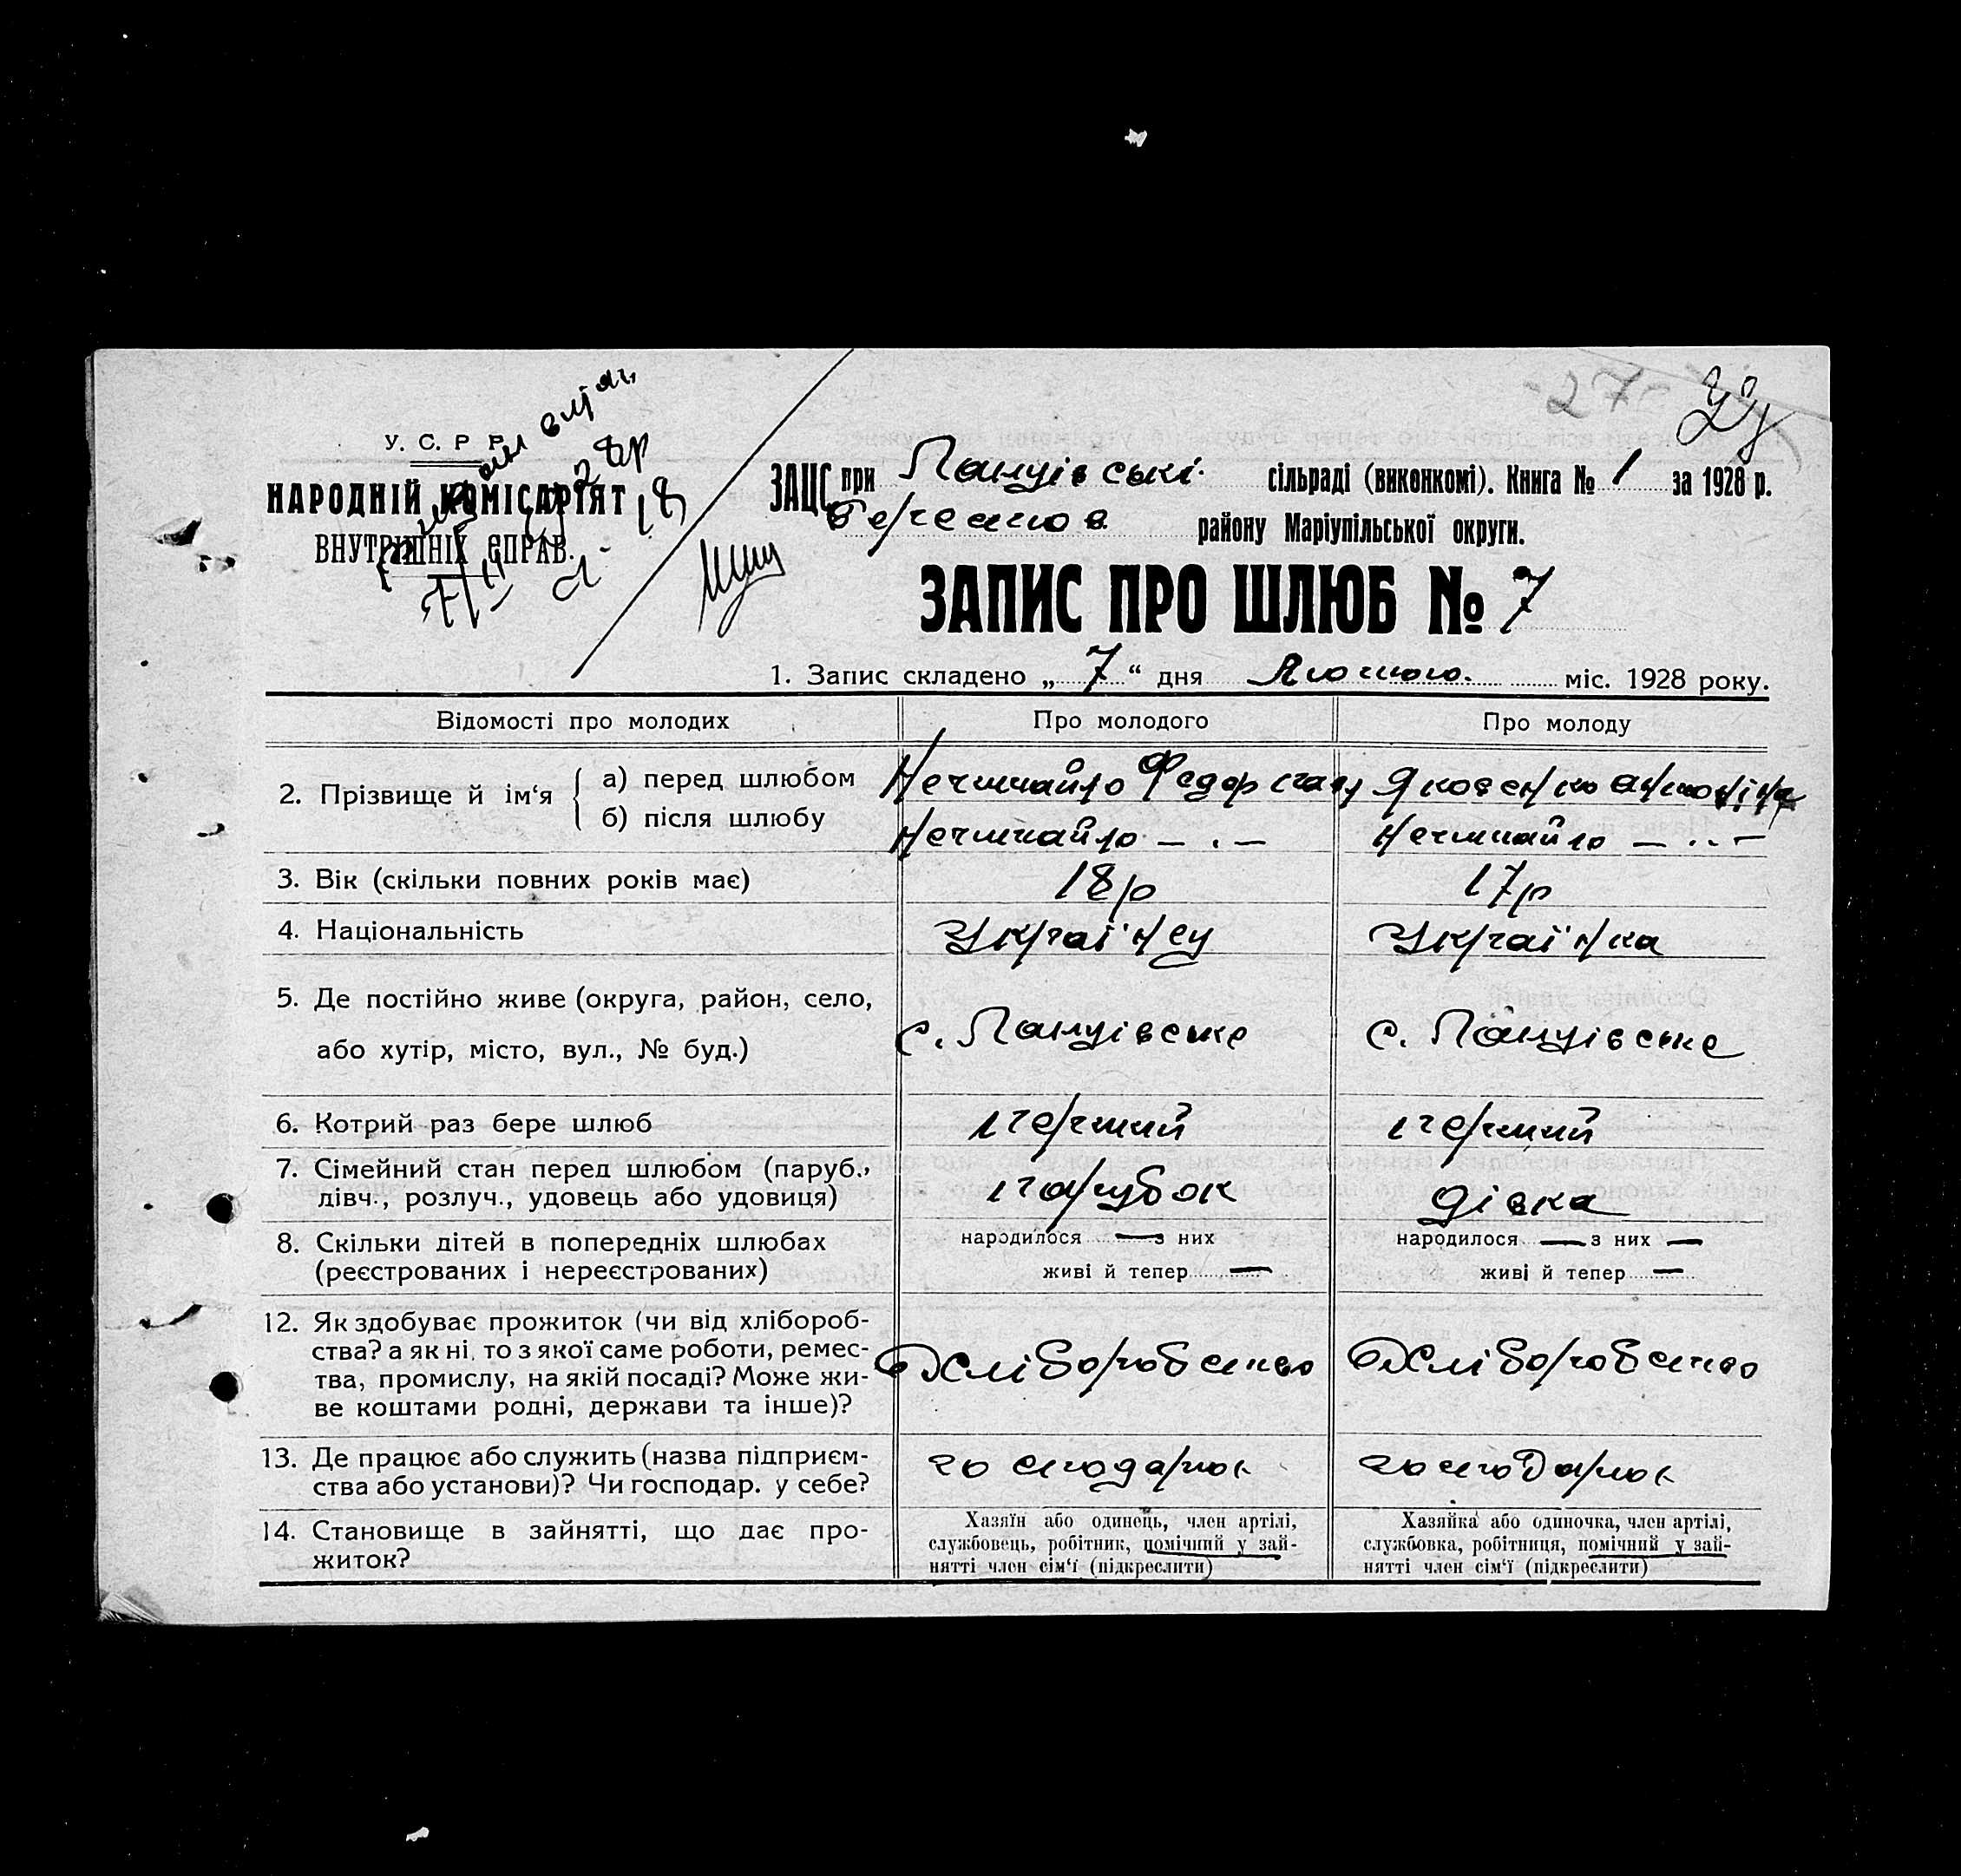 У. С. Р. Р.
НАРОДНІЙ КОМІСАРІЯТ
ВНУТРИШНІХ СПРАВ.
27
ЗАЦС при сільраді (виконкомі). Книга № 1 за 1928 р.
району Маріупільської округи.
ЗАПИС ПРО ШЛЮБ № 7
1. Запис складено „ 7 “ дня Лютого міс. 1928 року.
Відомості про молодих
Про молодого
Про молоду
2. Прізвище й ім‘я
а) перед шлюбом
Нечитайло Федор
Яковенко Антоніна
б) після шлюбу
Нечитайло — . —
Нечитайло — . . —
3. Вік (скільки повних років має)
18 р
17 р
4. Національність
Україн ец
Українка
5. Де постійно живе (округа, район, село,
або хутір, місто, вул., № буд.)
с.
с.
6. Котрий раз бере шлюб
перший
перший
7. Сімейний стан перед шлюбом (паруб.,
дівч., розлуч., удовець або удовиця)
парубок
дівка
8. Скільки дітей в попередніх шлюбах
(реєстрованих і нереєстрованих)
народилося — з них
живі й тепер —
народилося — з них —
живі й тепер —
12. Як здобуває прожиток (чи від хлібороб-
ства? а як ні, то з якої саме роботи, ремес-
тва, промислу, на якій посаді? Може жи-
ве коштами родні, держави та інше)?
Хліборобство
Хліборобство
13. Де працює або служить (назва підприєм-
ства або установи)? Чи господар. у себе?
господарює
господарює
14. Становище в зайнятті, що дає про-
житок?
Хазяїн або одинець, член артілі,
службовець, робітник, помічний у зай-
нятті член сім‘ї (підкреслити)
Хазяйка або одиночка, член артілі,
службовка, робітниця, помічний у зай-
нятті член сім‘ї (підкреслити)